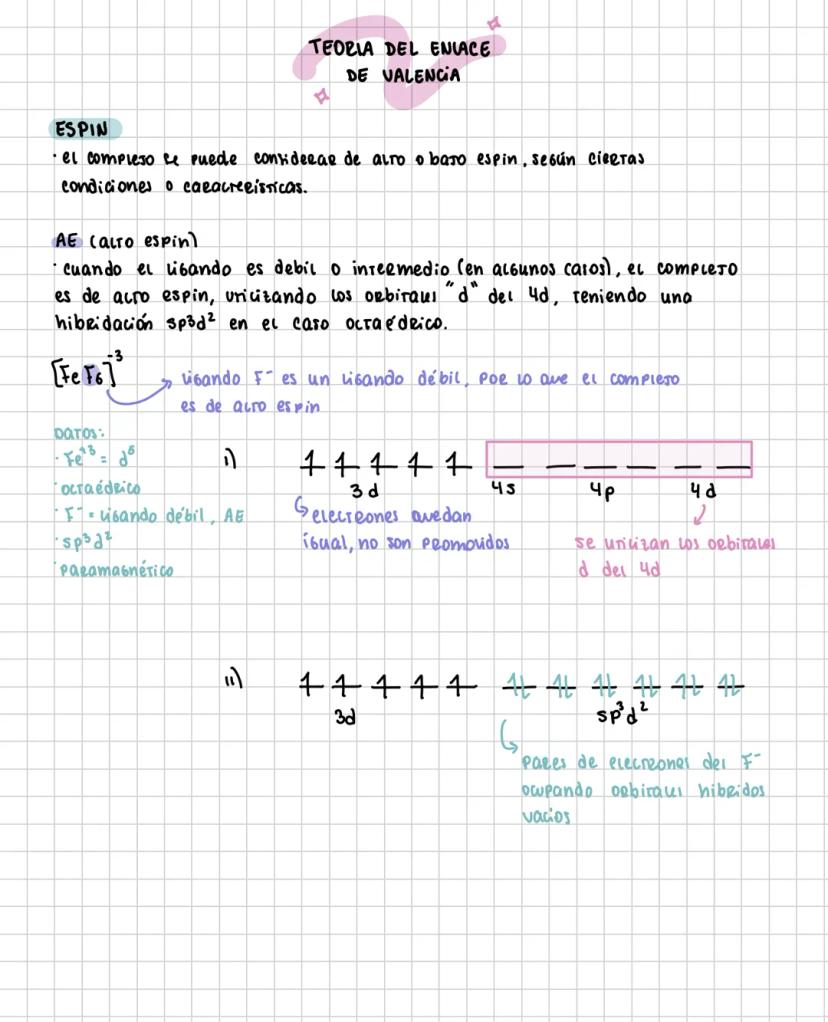 TEORIA DEL ENLACE
DE VALENCIA
ESPIN
· el complejo se puede considerar de alto o bajo espin, según ciertas
condiciones o características.
AE (alto espin)
· cuando el ligando es debil o intermedio (en algunos casos), el complejo
es de alto espin, utilizando los orbitales "d" del 4d, teniendo una
hibridación sp3d² en el caso octaédrico.
[FeF6]⁻³
ligando F⁻ es un ligando débil, por lo que el complejo
es de alto espin
DATOS:
· Fe⁺³ = d⁵
· octaédrico
· F⁻ = ligando débil, AE
· sp³d²
· paramagnético
i)
3d 4s 4p 4d
electrones quedan
igual, no son promovidos
se utilizan los orbitales
d del 4d
ii)
3d sp³d²
pares de electrones del F⁻
ocupando orbitales hibridos
vacios